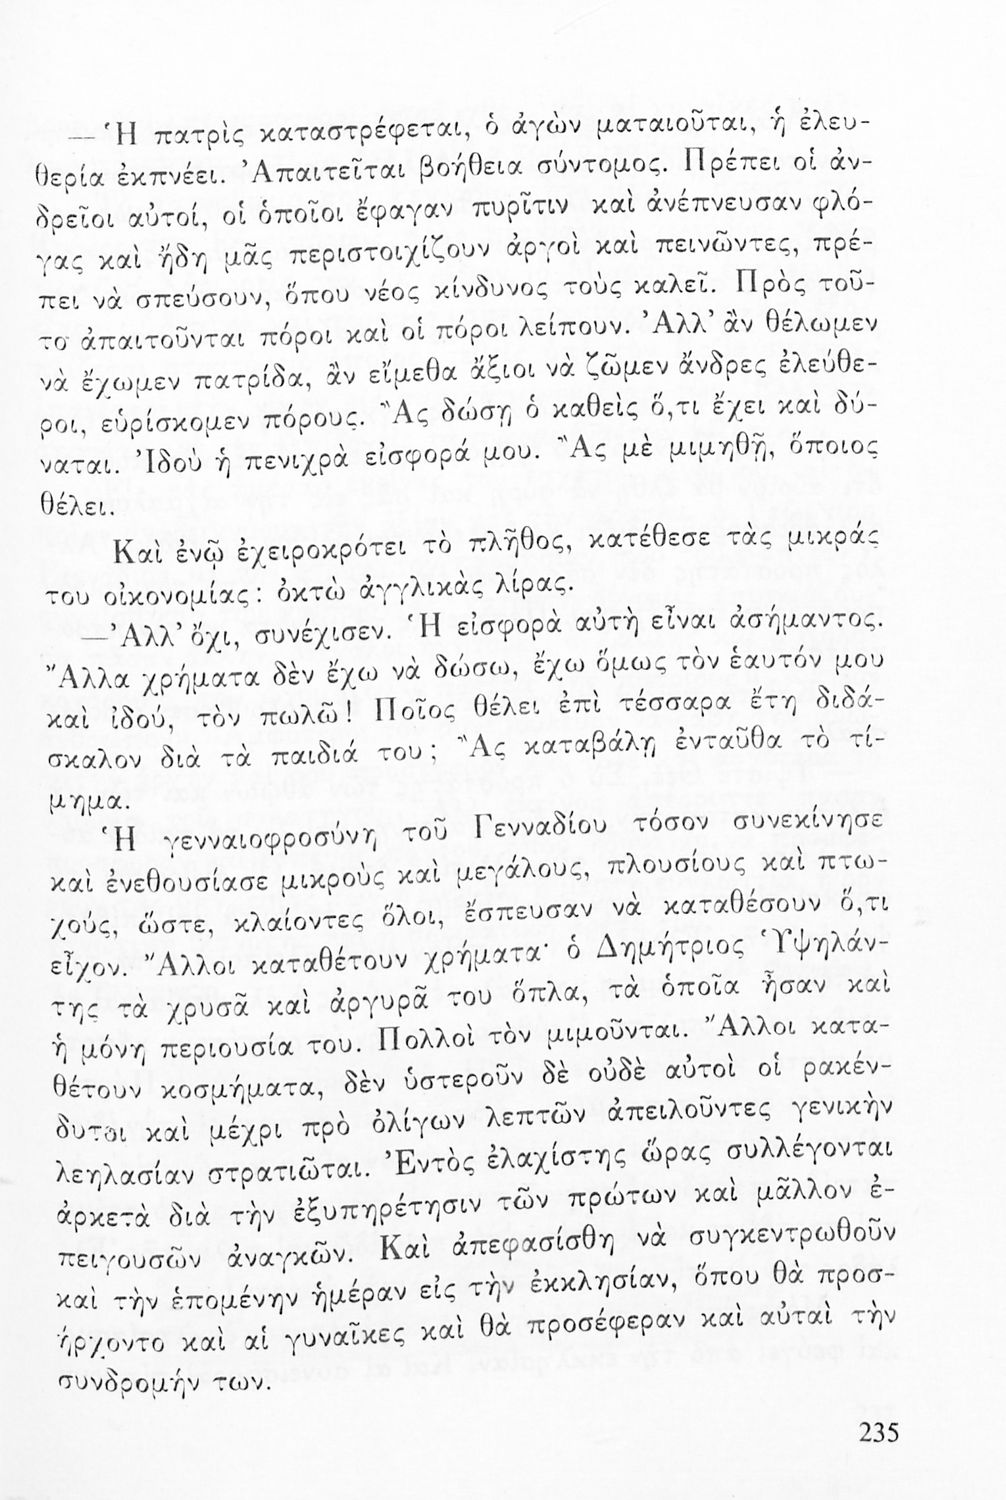 — Ἡ πατρὶς καταστρέφεται, ὁ ἀγὼν ματαιοῦται, ἡ ἐλευ-
θερία ἐκπνέει. Ἀπαιτεῖται βοήθεια σύντομος. Πρέπει οἱ ἀν-
δρεῖοι αὐτοί, οἱ ὁποῖοι ἔφαγαν πυρῖτιν καὶ ἀνέπνευσαν φλό-
γας καὶ ἤδη μᾶς περιστοιχίζουν ἀργοὶ καὶ πεινῶντες, πρέ-
πει νὰ σπεύσουν, ὅπου νέος κίνδυνος τοὺς καλεῖ. Πρὸς τοῦ-
το ἀπαιτοῦνται πόροι καὶ οἱ πόροι λείπουν. Ἀλλ’ ἂν θέλωμεν
νὰ ἔχωμεν πατρίδα, ἂν εἴμεθα ἄξιοι νὰ ζῶμεν ἄνδρες ἐλεύθε-
ροι, εὑρίσκομεν πόρους. Ἂς δώσῃ ὁ καθεὶς ὅ,τι ἔχει καὶ δύ-
ναται. Ἰδοὺ ἡ πενιχρὰ εἰσφορά μου. Ἂς μὲ μιμηθῇ, ὅποιος
θέλει.
Καὶ ἐνῷ ἐχειροκρότει τὸ πλῆθος, κατέθεσε τὰς μικράς
του οἰκονομίας: ὀκτὼ ἀγγλικὰς λίρας.
—Ἀλλ’ ὄχι, συνέχισεν. Ἡ εἰσφορὰ αὐτὴ εἶναι ἀσήμαντος.
Ἄλλα χρήματα δὲν ἔχω νὰ δώσω, ἔχω ὅμως τὸν ἑαυτόν μου
καὶ ἰδού, τὸν πωλῶ! Ποῖος θέλει ἐπὶ τέσσαρα ἔτη διδά-
σκαλον διὰ τὰ παιδιά του; Ἂς καταβάλῃ ἐνταῦθα τὸ τί-
μημα.
Ἡ γενναιοφροσύνη τοῦ Γενναδίου τόσον συνεκίνησε
καὶ ἐνεθουσίασε μικροὺς καὶ μεγάλους, πλουσίους καὶ πτω-
χούς, ὥστε, κλαίοντες ὅλοι, ἔσπευσαν νὰ καταθέσουν ὅ,τι
εἶχον. Ἄλλοι καταθέτουν χρήματα· ὁ Δημήτριος Ὑψηλάν-
της τὰ χρυσᾶ καὶ ἀργυρᾶ του ὅπλα, τὰ ὁποῖα ἦσαν καὶ
ἡ μόνη περιουσία του. Πολλοὶ τὸν μιμοῦνται. Ἄλλοι κατα-
θέτουν κοσμήματα, δὲν ὑστεροῦν δὲ οὐδὲ αὐτοὶ οἱ ρακέν-
δυτοι καὶ μέχρι πρὸ ὀλίγων λεπτῶν ἀπειλοῦντες γενικὴν
λεηλασίαν στρατιῶται. Ἐντὸς ἐλαχίστης ὥρας συλλέγονται
ἀρκετὰ διὰ τὴν ἐξυπηρέτησιν τῶν πρώτων καὶ μᾶλλον ἐ-
πειγουσῶν ἀναγκῶν. Καὶ ἀπεφασίσθη νὰ συγκεντρωθοῦν
καὶ τὴν ἑπομένην ἡμέραν εἰς τὴν ἐκκλησίαν, ὅπου θὰ προσ-
ήρχοντο καὶ αἱ γυναῖκες καὶ θὰ προσέφεραν καὶ αὐταὶ τὴν
συνδρομήν των.
235